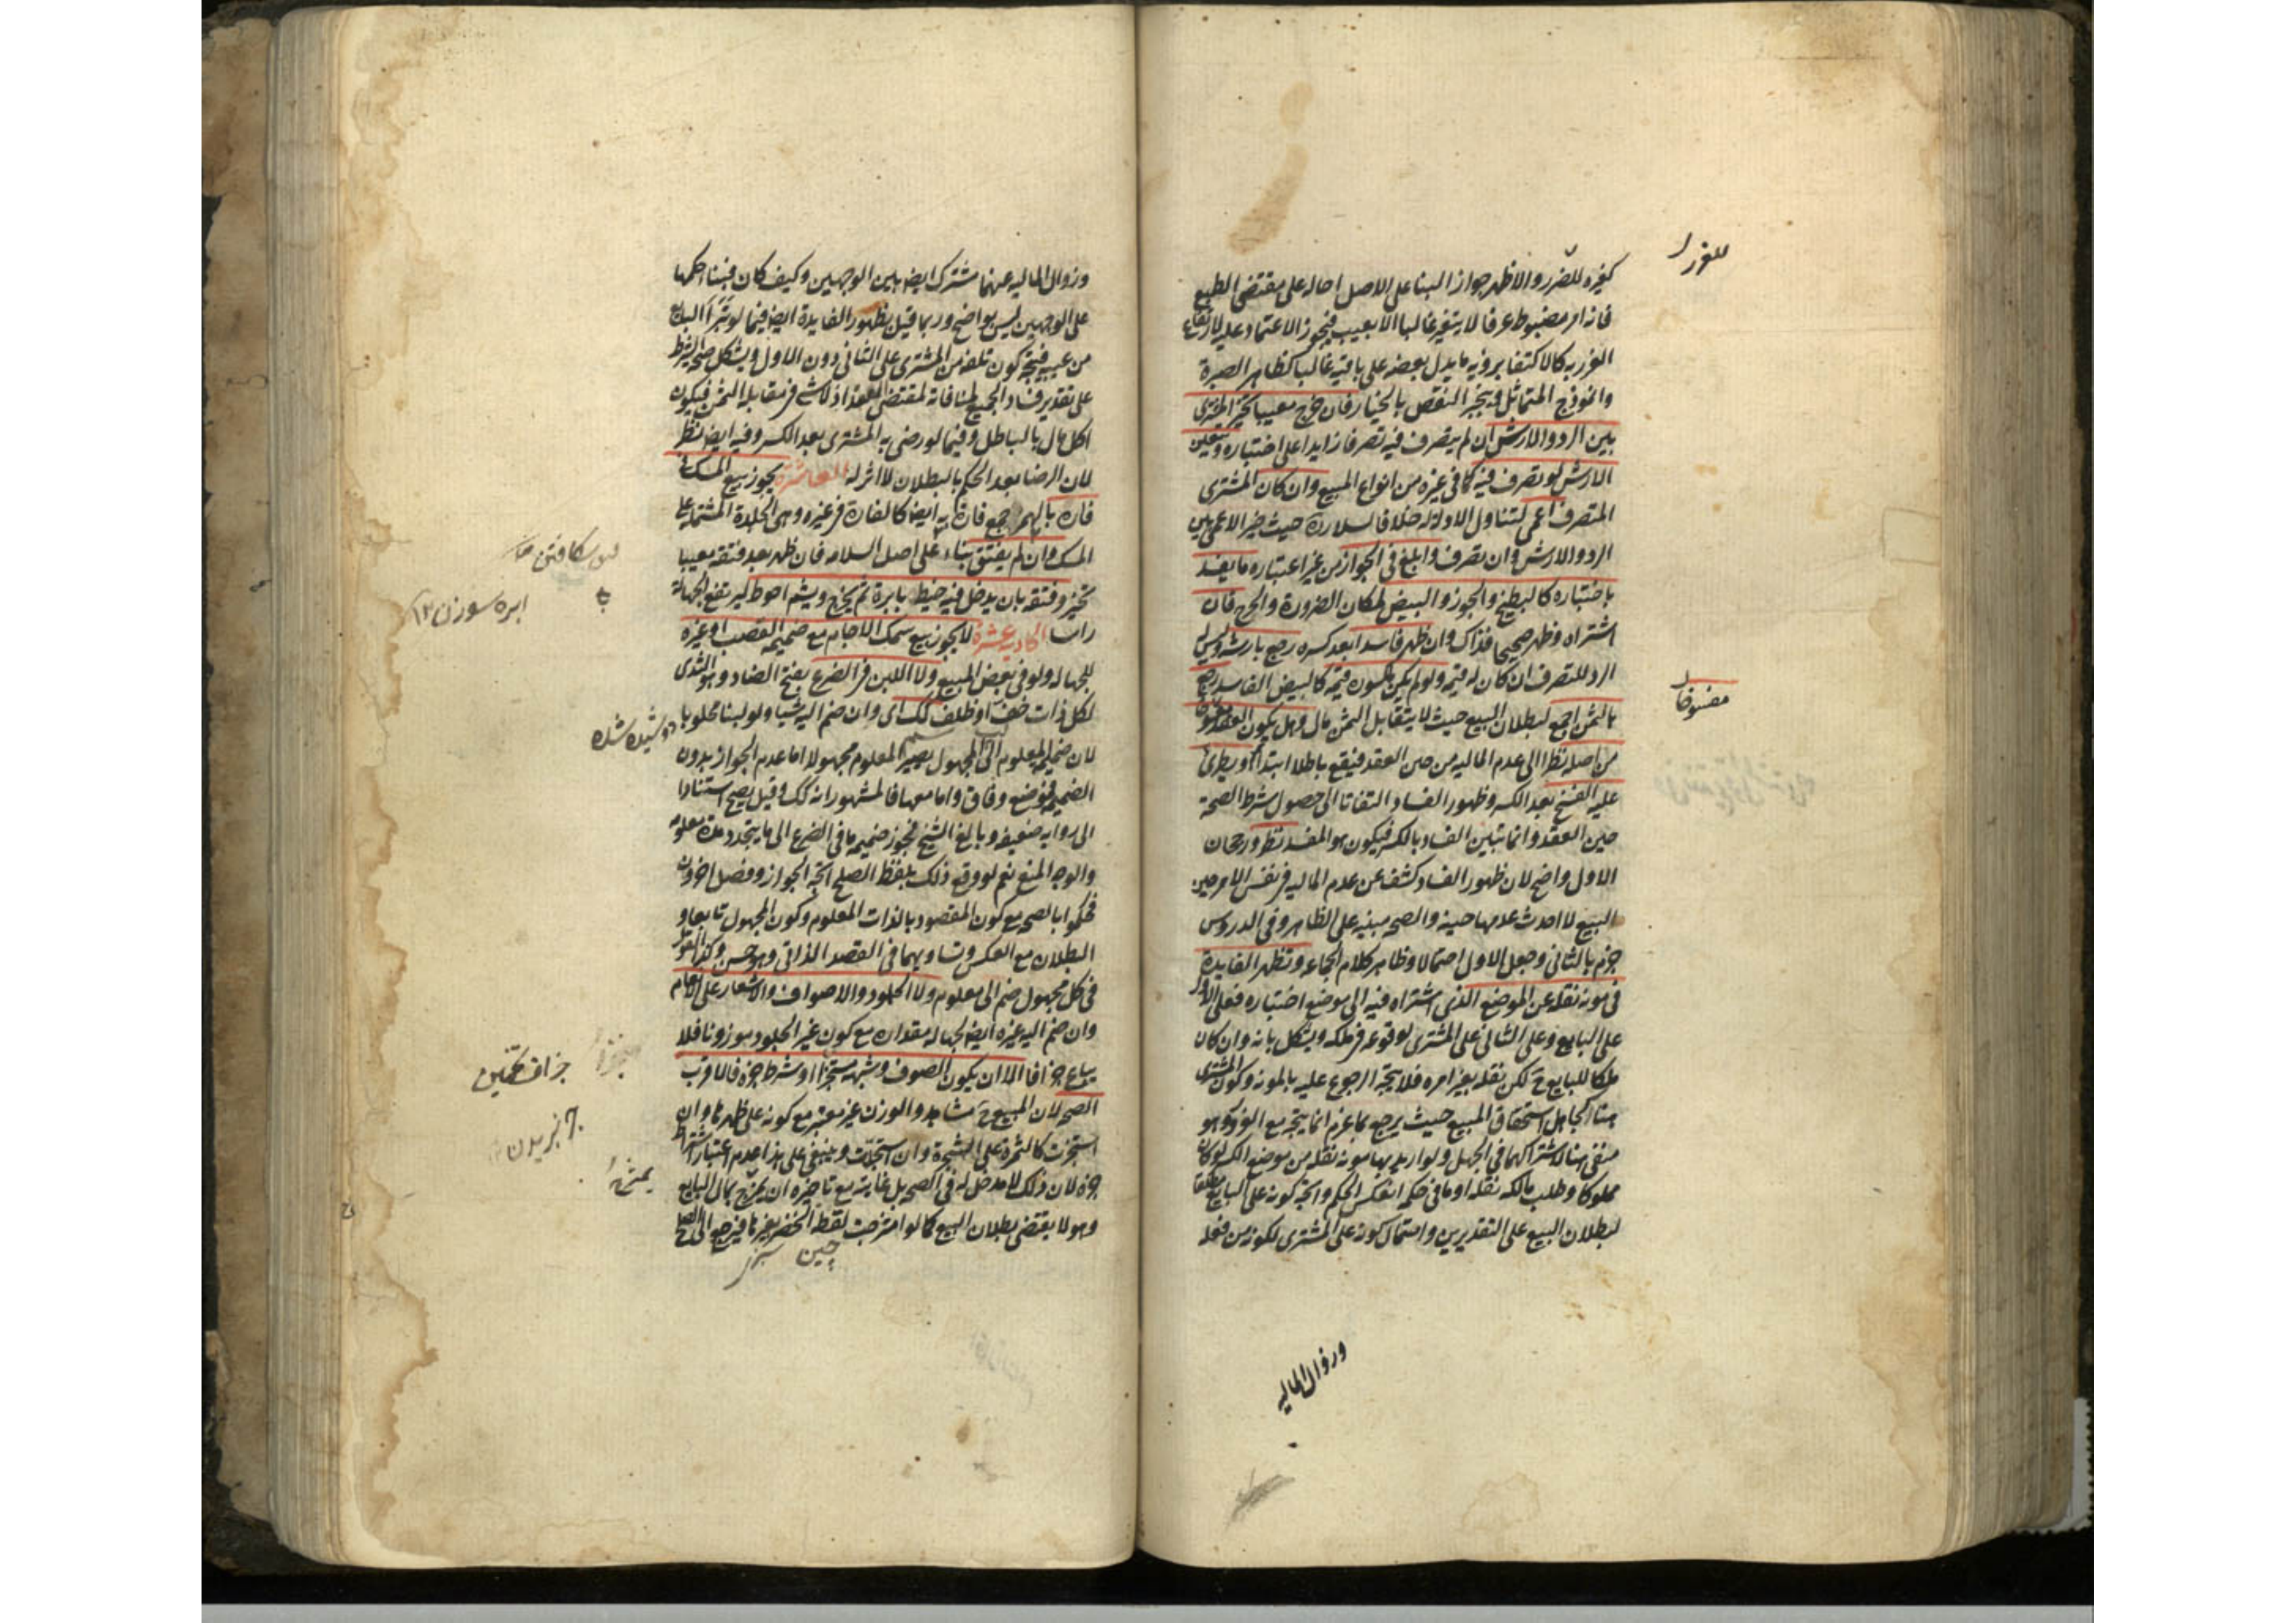 كغيره للضرر والاظهر جواز البناء على الاصل احالة على مقتضى الطبع
فانه امر مضبوط عرفا لا يتغير غالبا الا بعيب فيجوز الاعتماد عليه لارتفاع
الغرر به كالاكتفا برؤية ما يدل بعضه على باقيه غالبا كظاهر الصبرة
وانموذج المتماثل وينجبر النقص بالخيار فان خرج معيبا تخير المشترى
بين الرد والارش ان لم يتصرف فيه تصرفا زايدا على اختباره ويتعين
الارش لو تصرف فيه كما فى غيره من انواع المبيع وان كان المشترى
المتصرف اعمى لتناول الادلة له خلافا لسلار ره حيث خير الاعمى بين
الرد والارش وان تصرف وابلغ فى الجواز من غير اعتباره ما يفسد
باختباره كالبطيخ والجوز والبيض لمكان الضرورة والحرج فان
اشتراه وظهر صحيحا فذاك وان ظهر فاسدا بعد كسره رجع بارشه وليس له
الرد للتصرف ان كان له قيمة ولو لم يكن لمكسوره قيمة كالبيض الفاسد رجع
بالثمن اجمع لبطلان البيع حيث لا يقابل الثمن مال وهل يكون العقد مفسوخا
من اصله نظرا الى عدم المالية من حين العقد فيقع باطلا ابتداء او يطرئ
عليه الفسخ بعد الكسر وظهور الفساد التفاتا الى حصول شرط الصحة
حين العقد وانما تبين الفساد بالكسر فيكون هو المفسد نظر ورجحان
الاول واضح لان ظهور الفساد كشف عن عدم المالية فى نفس الامر حين
البيع لا احدث عدمها حينه والصحة مبنية على الظاهر وفى الدروس
جزم بالثانى وجعل الاول احتمالا وظاهر كلام الجماعة وتظهر الفايدة
فى مونة نقله عن الموضع الذى اشتراه فيه الى موضع اختباره فعلى الاول
على البايع وعلى الثانى على المشترى لوقوعه فى ملكه ويشكل بانه وان كان
ملكا للبايع ح لكن نقله بغير امره فلا يتجه الرجوع عليه بالمونة وكون المشترى
هنا كجاهل استحقاق المبيع حيث يرجع بما غرم انما يتجه مع الغرور وهو
منفى هنا لاشتراكهما فى الجهل ولو اريد بها مونة نقله من موضع الكسر لو كان
مملوكا وطلب مالكه نقله او ما فى حكمه انعكس الحكم واتجه كونه على البايع مطلقا
لبطلان البيع على التقديرين واحتمال كونه على المشترى لكونه من فعله
للغرر
مفسوخا
وزوال المالية
وزوال المالية عنهما مشترك ايض بين الوجهين وكيف كان فبناء حكمها
على الوجهين ليس بواضح وربما قيل بظهور الفايدة ايض فيما لو تبرأ البايع
من عيبه فيتجه كون تلفه من المشترى على الثانى دون الاول ويشكل صحة الشرط
على تقدير فساد الجميع لمنافاته لمقتضى العقد اذ لا شىء فى مقابلة الثمن فيكون
اكل مال بالباطل وفيما لو رضى به المشترى بعد الكسر وفيه ايض نظر
لان الرضا بعد الحكم بالبطلان لا اثر له العاشرة يجوز بيع المسك فى
فاره بالهمز جمع فارة به ايضا كالفارة فى غيره وهى الجلدة المشتملة على
المسك وان لم يفتق بناء على اصل السلامة فان ظهر بعد فتقه معيبا
تخير وفتقه بان يدخل فيه خيط بابرة ثم يخرج ويشم احوط ليرتفع الجهالة
راسا الحادية عشرة لا يجوز بيع سمك الاجام مع ضميمة القصب او غيره
للجهالة ولو فى بعض المبيع ولا اللبن فى الضرع بفتح الضاد وهو الثدى
لكل ذات خف او ظلف كك اى وان ضم اليه شيا ولو لبنا محلوبا
لان ضميمة المعلوم الى المجهول يصير المعلوم مجهولا اما عدم الجواز بدون
الضميمة فموضع وفاق واما معها فالمشهور انه كك وقيل يصح استنادا
الى رواية ضعيفة وبالغ الشيخ فجوز ضميمة ما فى الضرع الى ما يتجدد مدة معلومة
والوجه المنع نعم لو وقع ذلك بلفظ الصلح اتجه الجواز وفصل اخرون
فحكموا بالصحة مع كون المقصود بالذات المعلوم وكون المجهول تابعا و
البطلان مع العكس وتساويهما فى القصد الذاتى وهو حسن وكذا القول
فى كل مجهول ضم الى معلوم ولا الجلود والاصواف والاشعار على الانعام
وان ضم اليه غيره ايض لجهالة مقداره مع كون غير الجلود موزونا فلا
يباع جزافا الا ان يكون الصوف وشبهه مستجزا او شرط جزه فالاقرب
الصحة لان المبيع ح مشاهد والوزن غير معتبر مع كونه على ظهرها وان
استجزت كالثمرة على الشجرة وان استجذت وينبغى على هذا عدم اعتبار اشتراط
جزه لان ذلك لا مدخل له فى الصحة بل غايته مع تاخيره ان يمتزج بمال البايع
وهو لا يقتضى بطلان البيع كما لو امتزجت لقطة الخضر بغيرها فيرجع الى الصلح
چين سبز
ابره سوزن ١٢
دوشيده شده
جزاف تخمين
بريدن